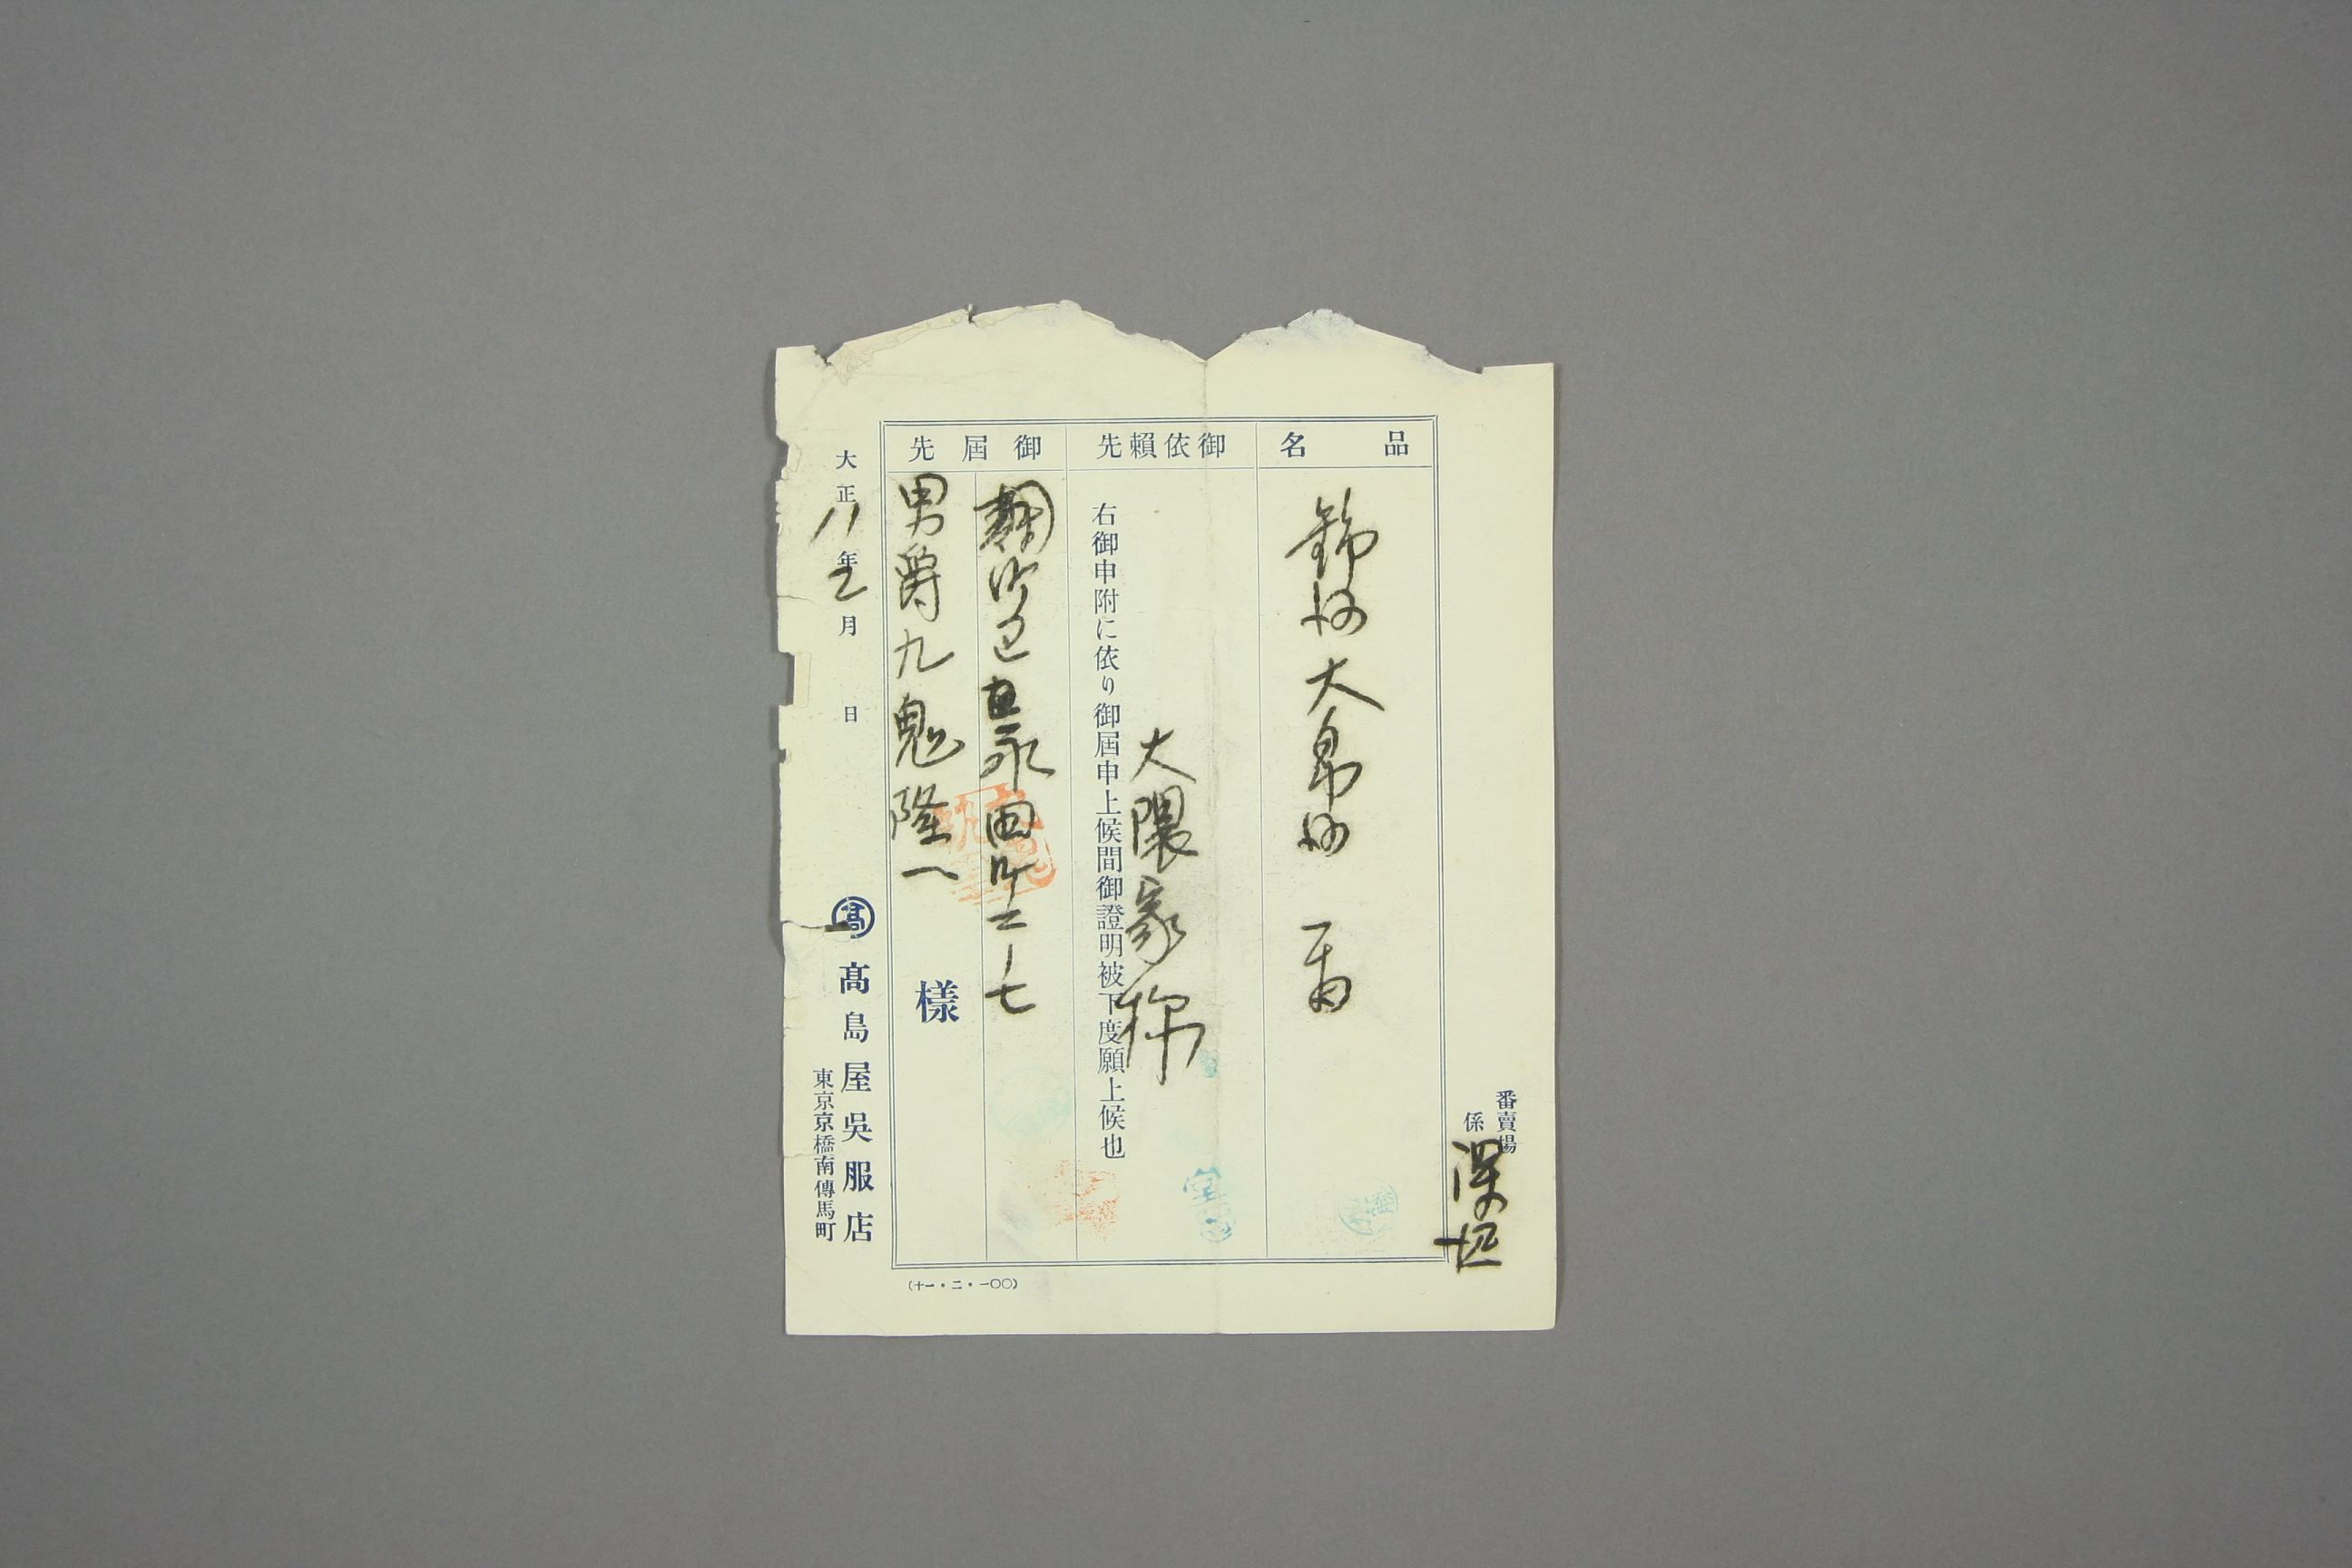 番賣場
係
品名
錦紗大帛紗
御依賴先
大隈家様
右御申附に依り御屆申上候間御證明被下度願上候也
御屆先
麹町区永田町二ノ七
男爵九鬼隆一樣
大正11年2月 日
髙
髙島屋吳服店
東京京橋南傳馬町
(十一・二・一〇〇)